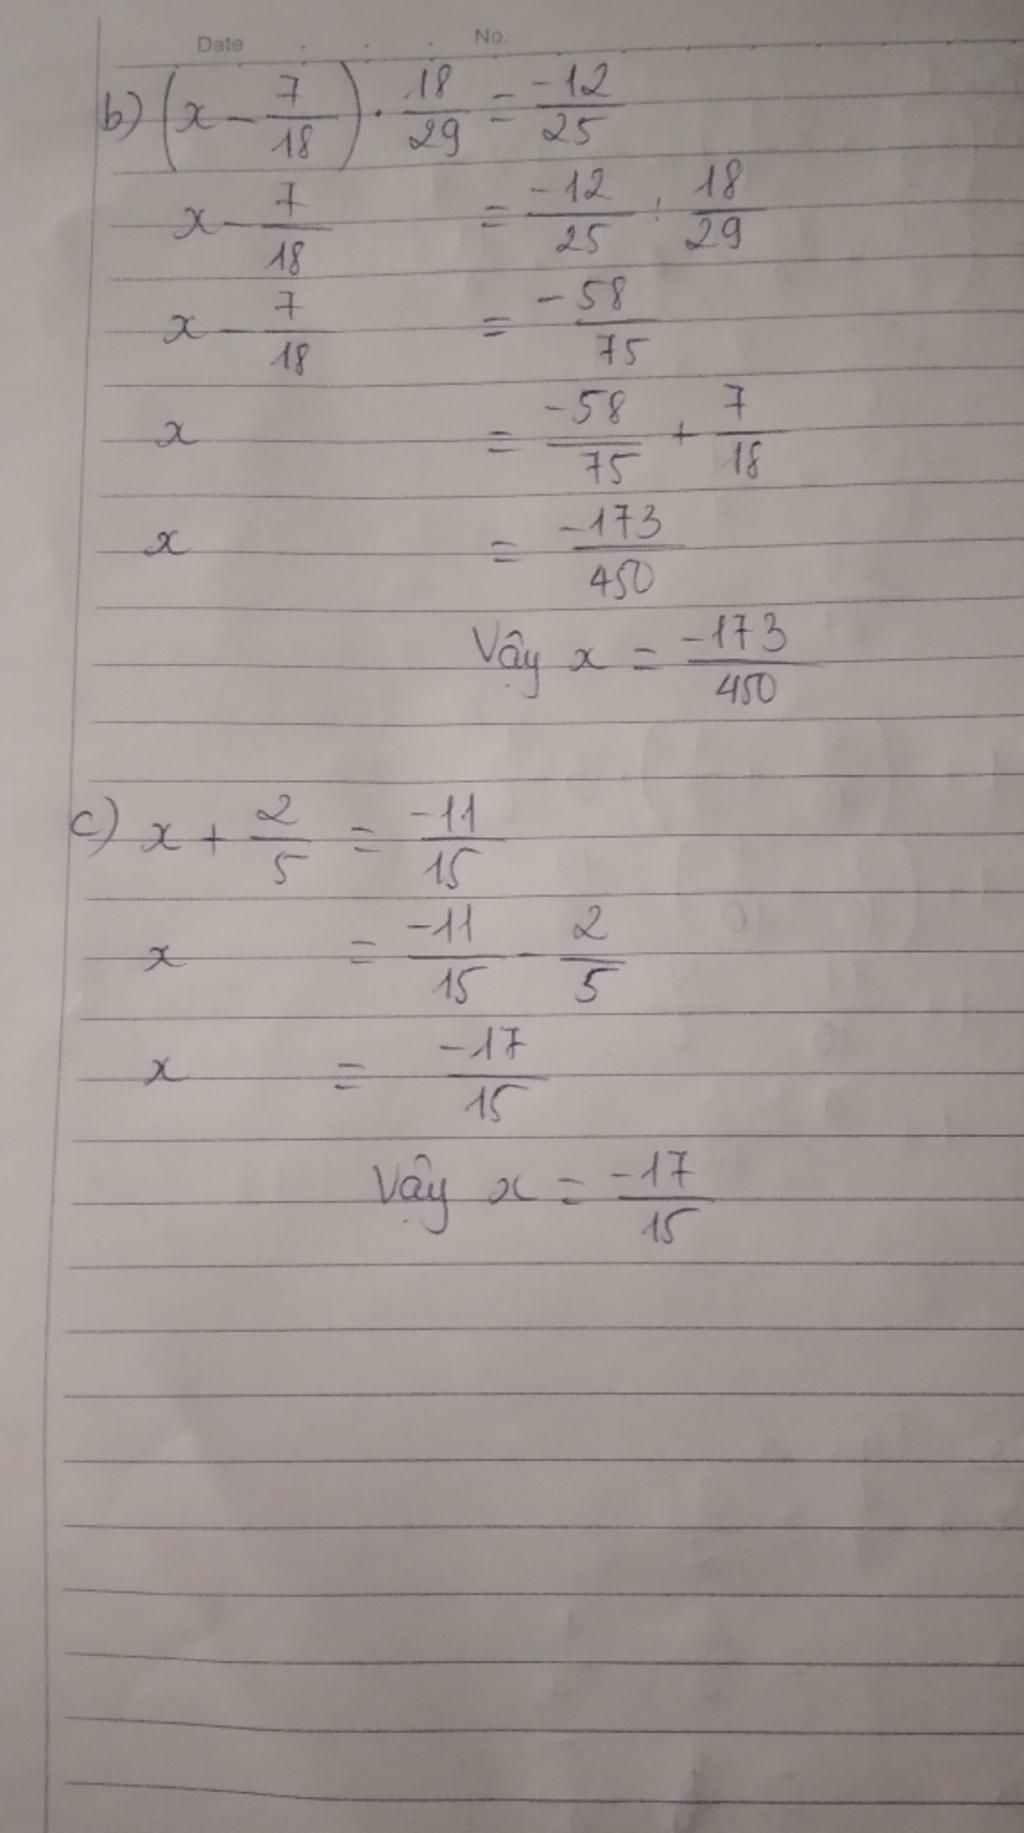 Date No.
b) (x - 7/18) . 18/29 = -12/25
x - 7/18 = -12/25 : 18/29
x - 7/18 = -58/75
x = -58/75 + 7/18
x = -173/450
Vậy x = -173/450
c) x + 2/5 = -11/15
x = -11/15 - 2/5
x = -17/15
Vậy x = -17/15